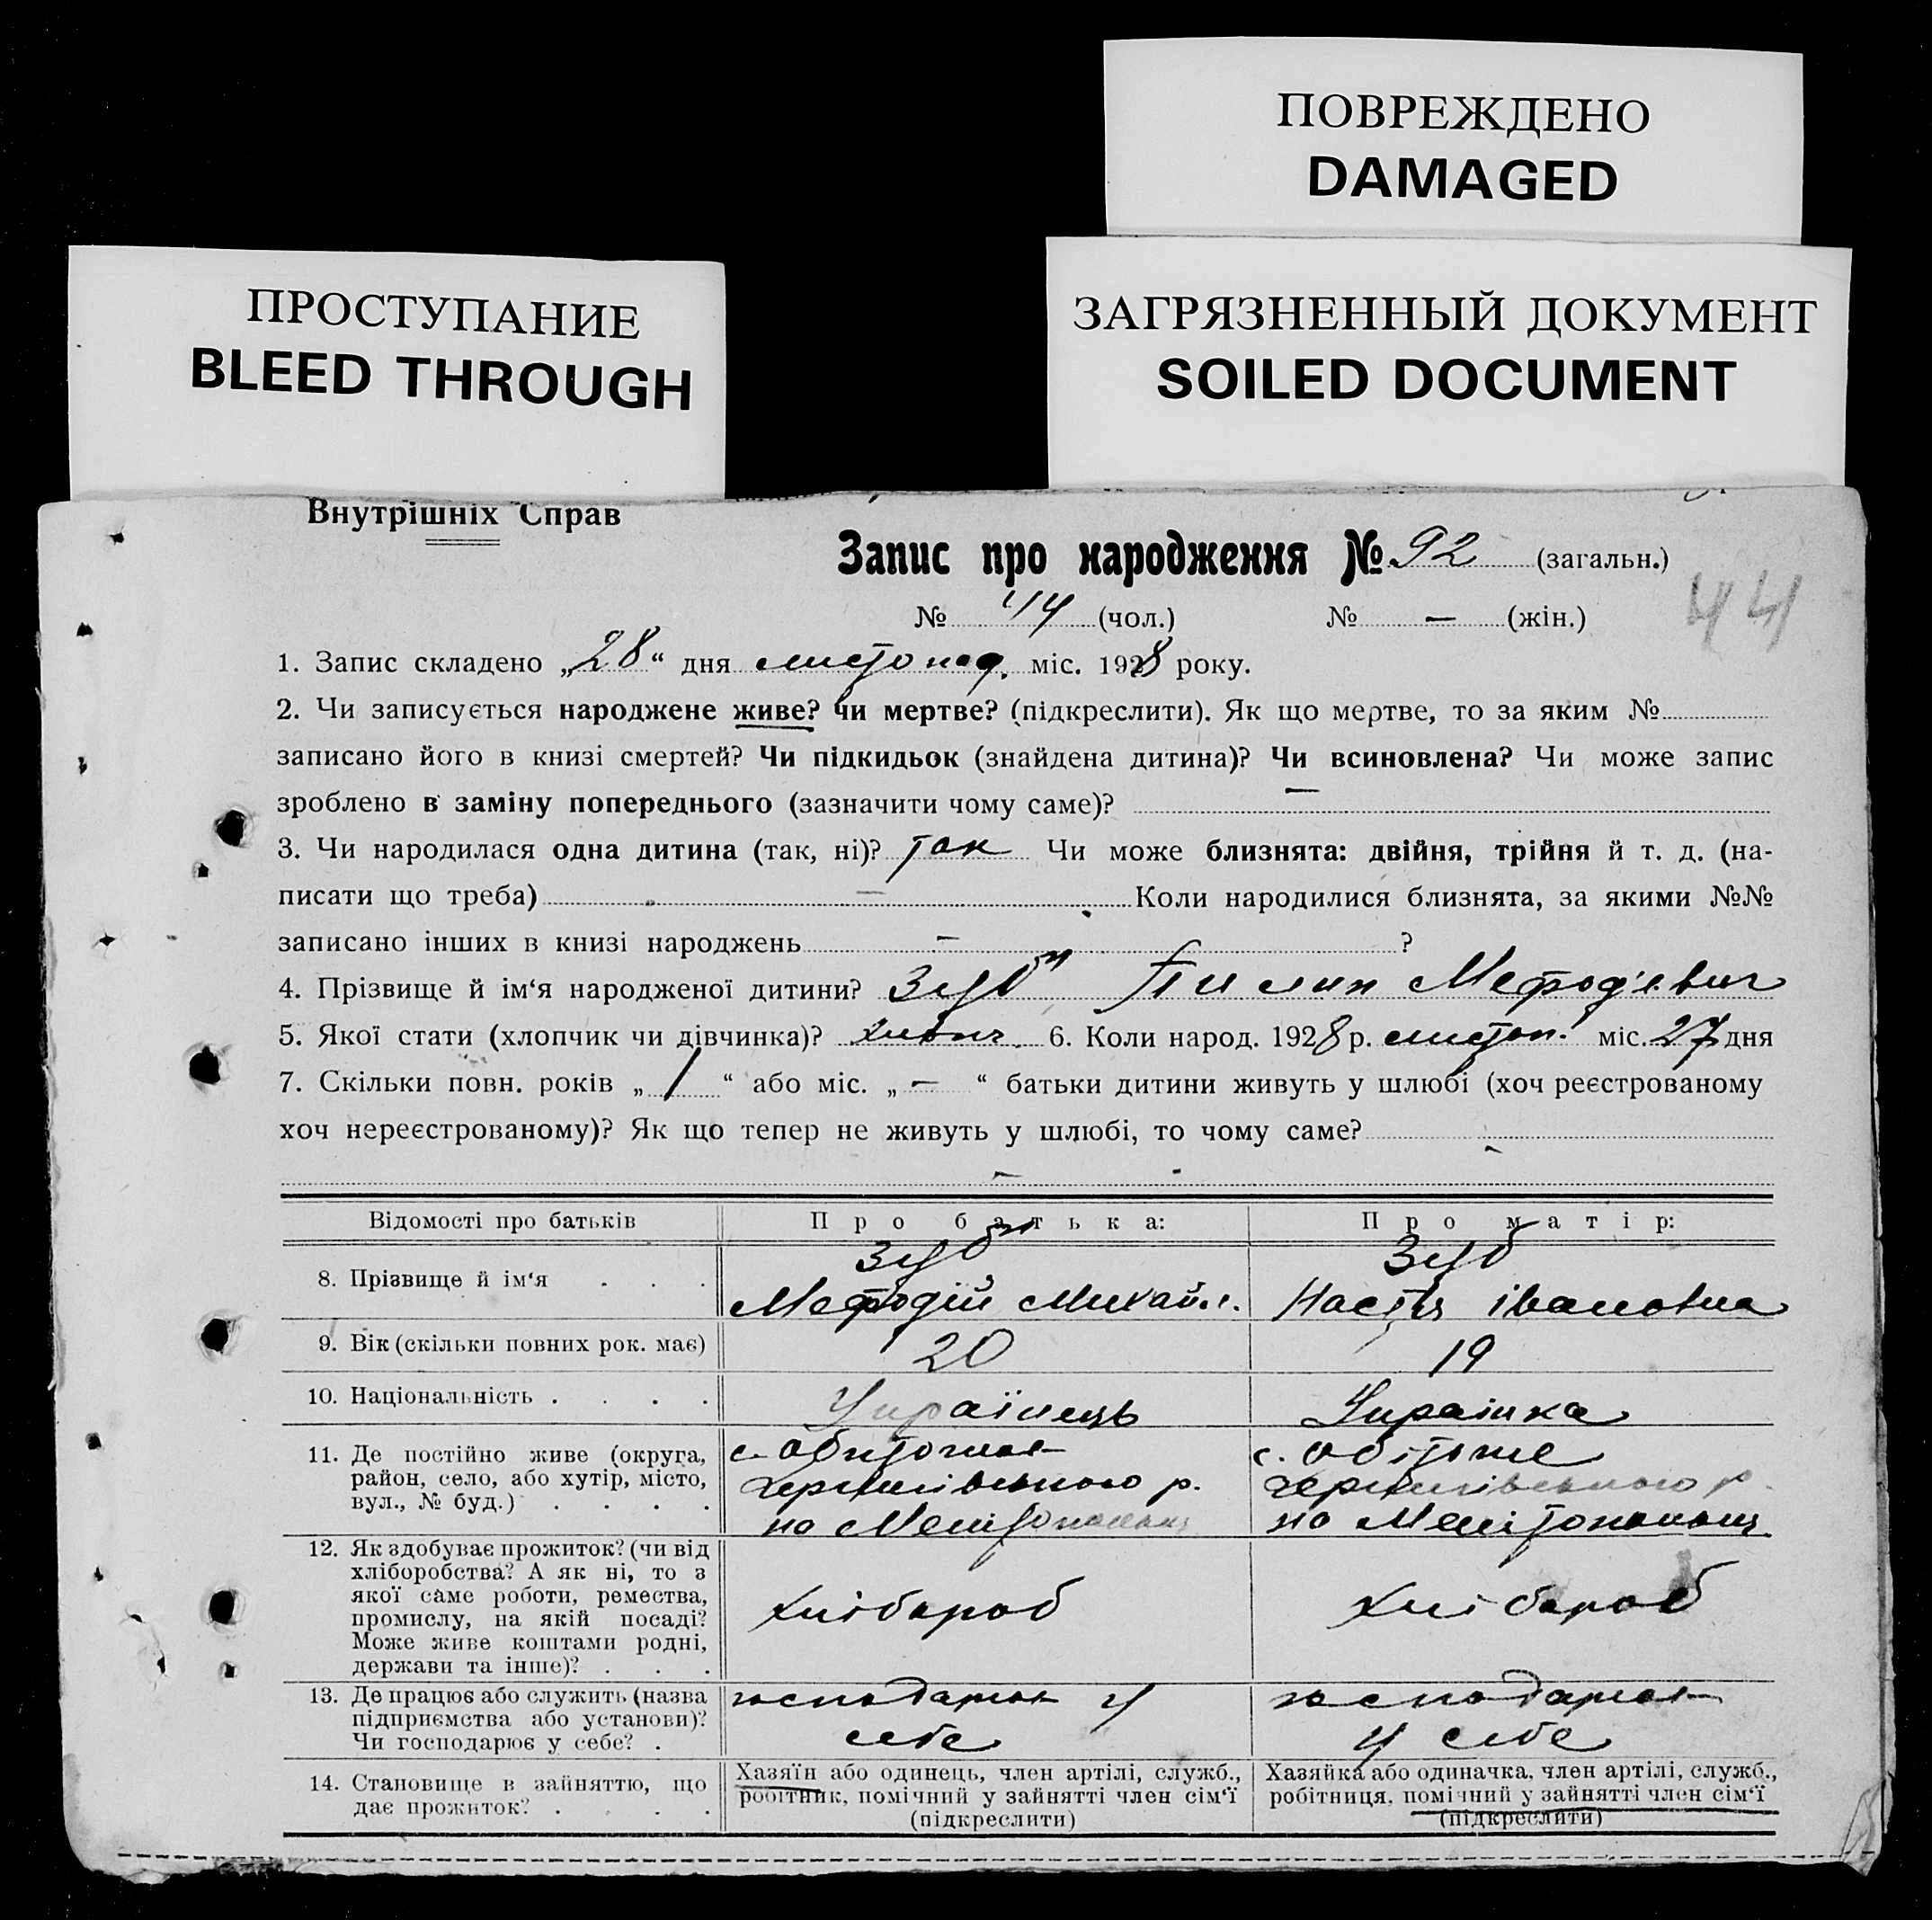 ПОВРЕЖДЕНО
DAMAGED
ПРОСТУПАНИЕ
BLEED THROUGH
ЗАГРЯЗНЕННЫЙ ДОКУМЕНТ
SOILED DOCUMENT
Внутрішніх Справ
Запис про народження № 92 (загальн.)
№ 44 (чол.) № — (жін.)
44
1. Запис складено „28“ дня листопад. міс. 1928 року.
2. Чи записується народжене живе? чи мертве? (підкреслити). Як що мертве, то за яким №
записано його в книзі смертей? Чи підкидьок (знайдена дитина)? Чи всиновлена? Чи може запис
зроблено в заміну попереднього (зазначити чому саме)? —
3. Чи народилася одна дитина (так, ні)? так Чи може близнята: двійня, трійня й т. д. (на-
писати що треба) — Коли народилися близнята, за якими №№
записано інших в книзі народжень — ?
4. Прізвище й ім‘я народженої дитини? Зуб Пилип Мефод'евич
5. Якої стати (хлопчик чи дівчинка)? хлопч. 6. Коли народ. 1928 р. листоп. міс. 27 дня
7. Скільки повн. років „1“ або міс. „—“ батьки дитини живуть у шлюбі (хоч реєстрованому
хоч нереєстрованому)? Як що тепер не живуть у шлюбі, то чому саме?
—
Відомості про батьків Про батька: Про матір:
8. Прізвище й ім‘я . . . Зуб Мефодій Михайл. Зуб Настя Івановна
9. Вік (скільки повних рок. має) 20 19
10. Національність . . . . Українець Українка
11. Де постійно живе (округа, с. Обіточне с. Обіточне
район, село, або хутір, місто, Чернигівського р. Чернигівського р.
вул., № буд.) . . . . на Мелітопольщ. на Мелітопольщ.
12. Як здобуває прожиток? (чи від
хліборобства? А як ні, то з
якої саме роботи, ремества,
промислу, на якій посаді? хлібороб хлібороб
Може живе коштами родні,
держави та інше)? . . .
13. Де працює або служить (назва господарює у господарює
підприємства або установи)? себе у себе
Чи господарює у себе? .
14. Становище в зайняттю, що Хазяїн або одинець, член артілі, служб., Хазяйка або одиначка, член артілі, служб.,
дає прожиток? . . . . робітник, помічний у зайнятті член сім‘ї робітниця, помічний у зайнятті член сім‘ї
(підкреслити) (підкреслити)